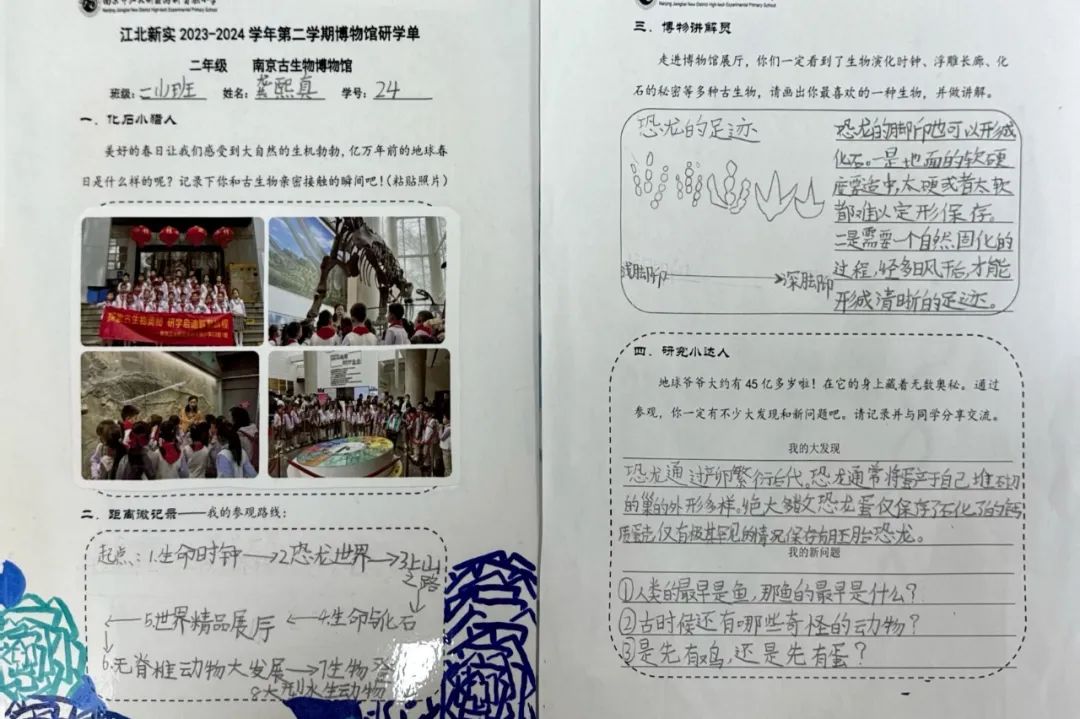 Nanjing Jiangbei New District High-tech Experimental Primary School
江北新实 2023-2024 学年第二学期博物馆研学单
二年级 南京古生物博物馆
班级: 二山班 姓名: 龚熙真 学号: 24
一．化石小猎人
美好的春日让我们感受到大自然的生机勃勃,亿万年前的地球春
日是什么样的呢？记录下你和古生物亲密接触的瞬间吧!(粘贴照片)
二．距离微记录——我的参观路线:
起点: 1.生命时钟→2恐龙世界→3上山之路
←5.世界精品展厅 ←4.生命与化石
6.无脊椎动物大发展→7生物
8大型水生动物
New District High-tech Experimental Primary School
三．博物讲解员
走进博物馆展厅，你们一定看到了生物演化时钟、浮雕长廊、化
石的秘密等多种古生物，请画出你最喜欢的一种生物，并做讲解。
恐龙的足迹
浅脚印→深脚印
恐龙的脚印也可以形成
化石。一是地面的软硬
度要适中,太硬或者太软
都难以定形保存。
二是需要一个自然固化的
过程,经多日风干后,才能
形成清晰的足迹。
四．研究小达人
地球爷爷大约有 45 亿多岁啦！在它的身上藏着无数奥秘。通过
参观，你一定有不少大发现和新问题吧。请记录并与同学分享交流。
我的大发现
恐龙通过产卵繁衍后代。恐龙通常将蛋产于自己堆切
的巢的外形多样。绝大多数恐龙蛋仅保存了石化了的钙
质蛋壳,仅有极其罕见的情况保存有胚胎恐龙。
我的新问题
①人类的最早是鱼,那鱼的最早是什么？
②古时候还有哪些奇怪的动物？
③是先有鸡,还是先有蛋？